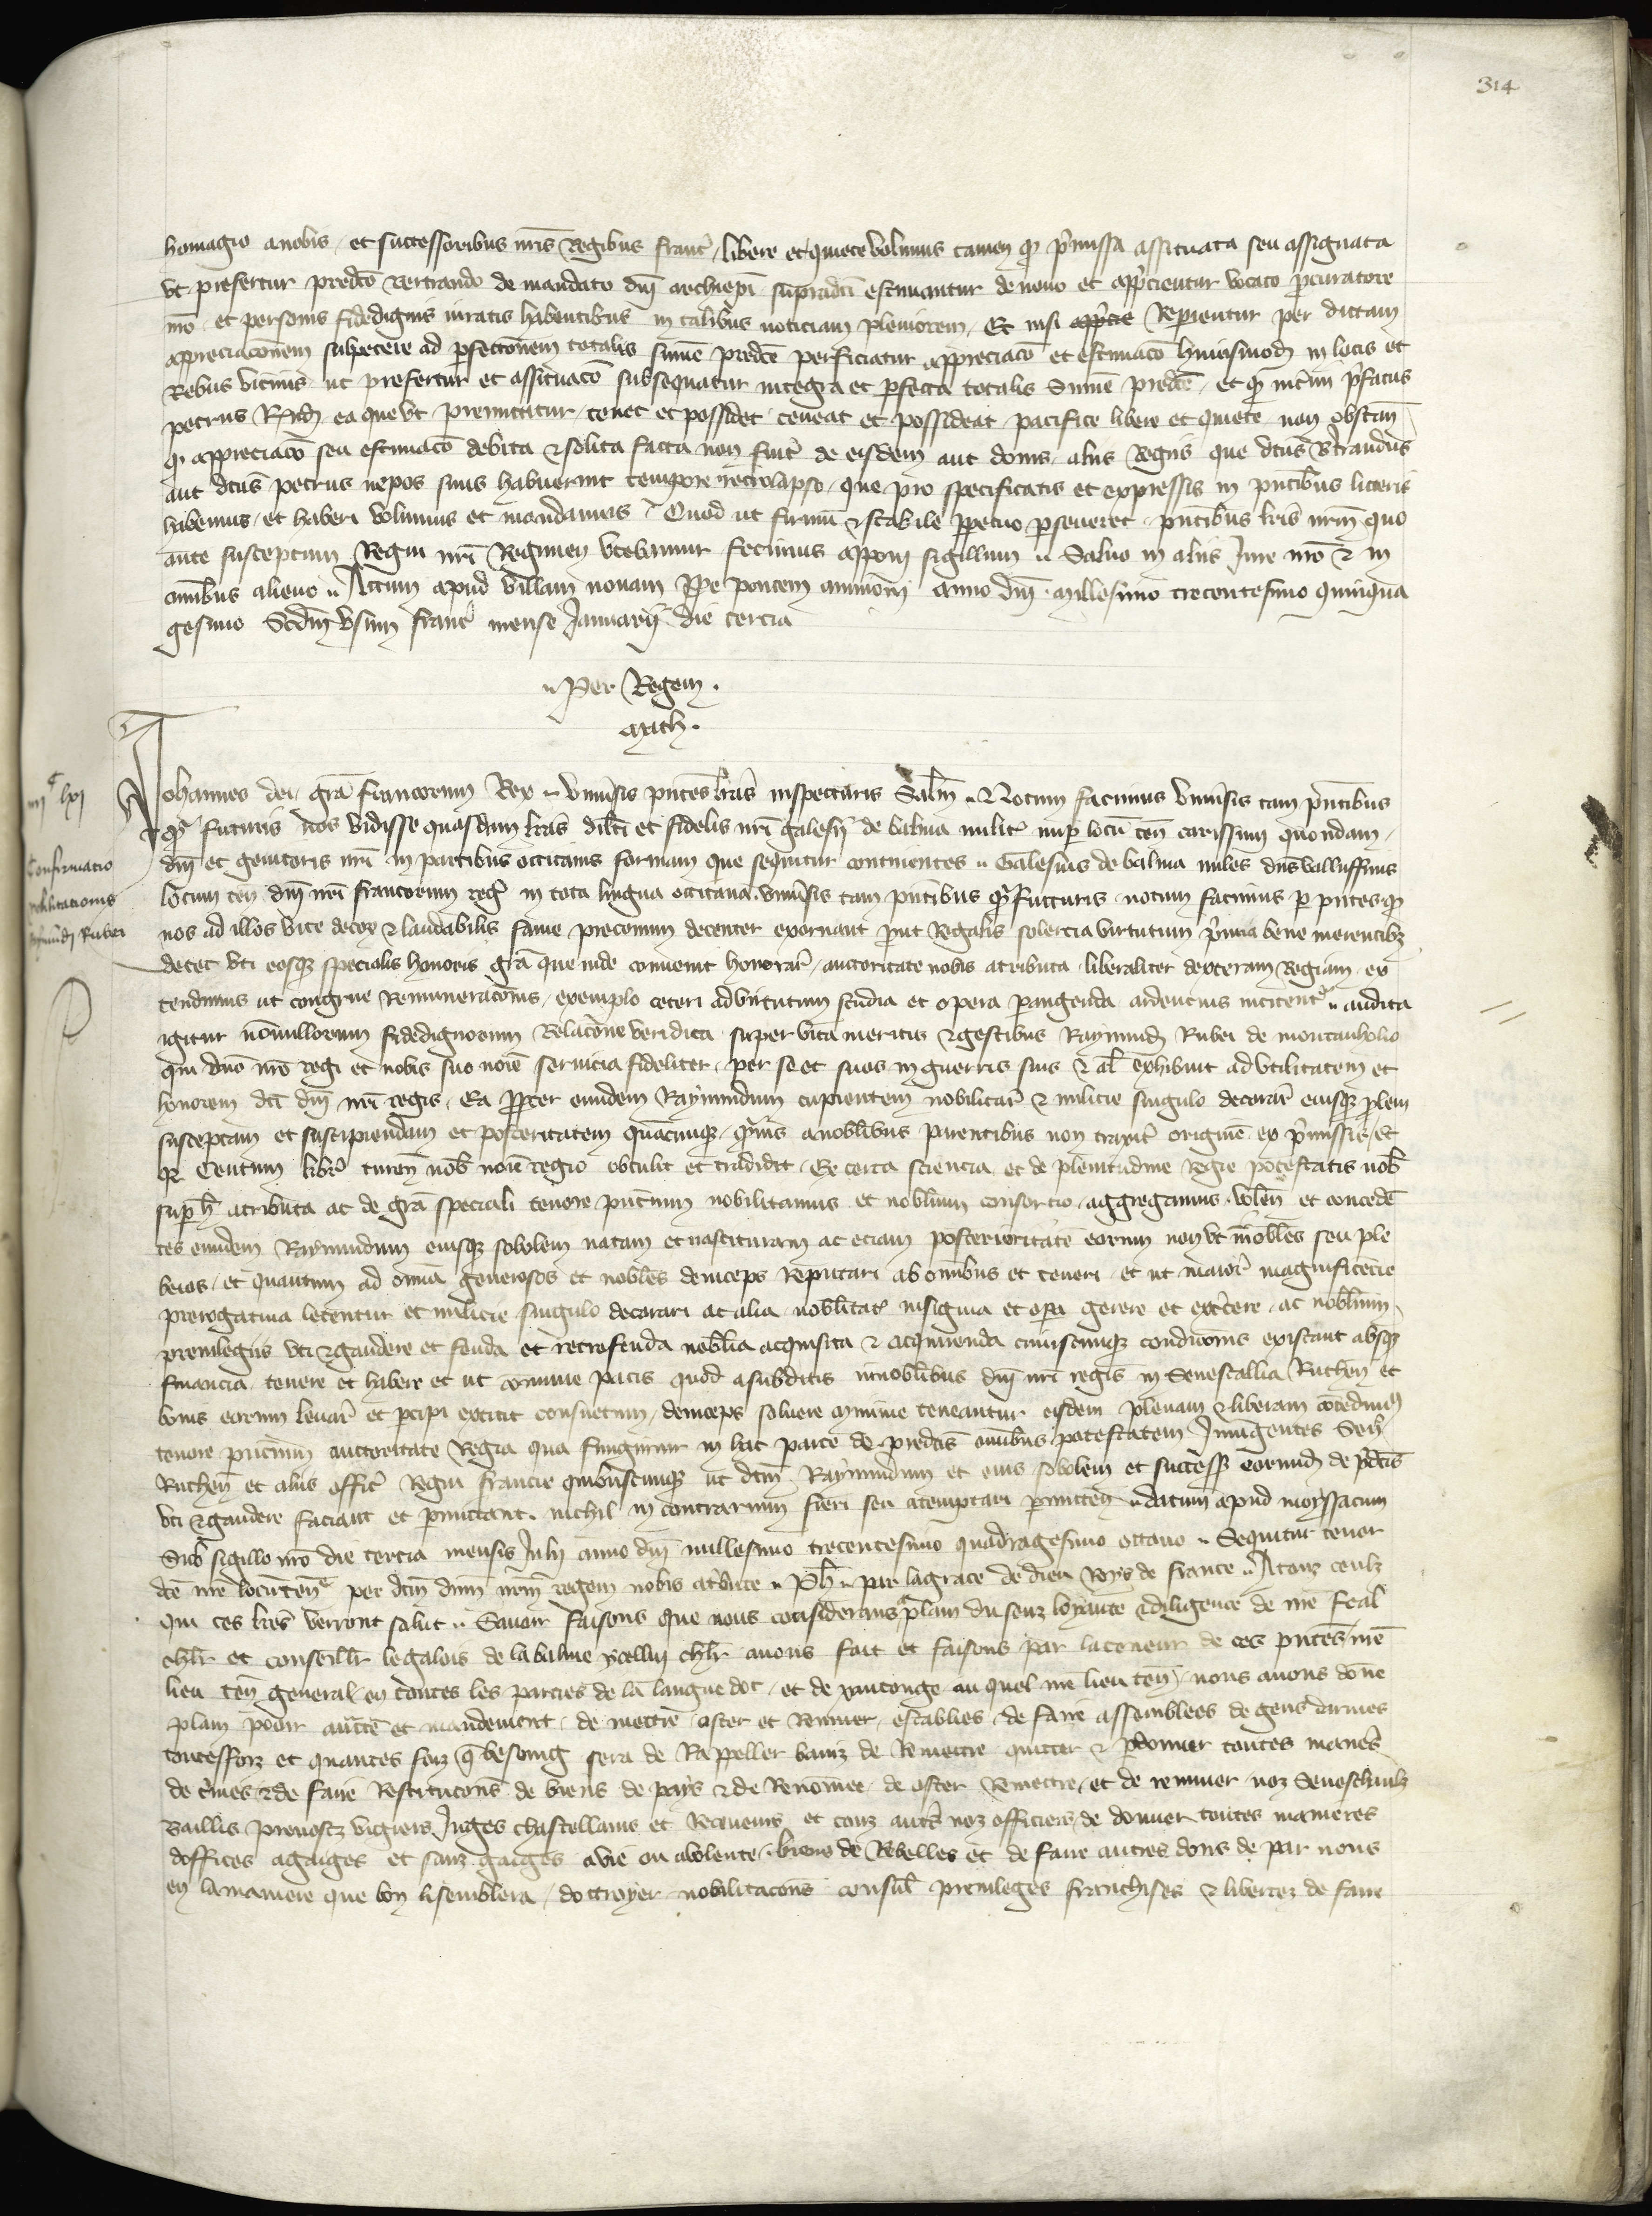 314
homagio a nobis et successoribus nris Regibus franc libere et quiete volumus tamen q pmissa assituata seu assignata
ut prefertur predco Bertrando de mandato dni archiepi supradci estimantur de novo et appcientur vocato pcuratore
nro et personis fidedignis iuratis habentibus in talibus noticiam pleniorem Et nisi Repientur per dictam
appreciaconem sufficere ad pfectionem totalis sume predce perficiatur appreciaco et estimaco huiusmodi in locis et
Rebus vicinis ut prefertur et assituaco subsequatur integra et pfecta totalis Sume predce et q interim pfatus
petrus ea que ut premittitur tenet et possidet teneat et possideat pacifice libere et quiete non obstan
q appreciaco seu estimaco debita et solita facta non fuit de eisdem aut donis aliis Regiis que dcus Btrandus
aut dcus petrus nepos suus habuerint tempore retrolapso que pro specificatis et expressis in pntibus litteris
habemus et haberi volumus et mandamus Quod ut firmu et stabile ppetuo pseveret pntibus lris nrm quo
ante susceptum Regni nri Regimen utebamur fecimus apponi sigillum Salvo in aliis Jure nro et in
omibus alieno Actum apud villam novam ppe pontem avinion anno dni millesimo trecentesimo quinqua
gesimo Scdm usum franc mense Januarii die tercia
Per Regem
Math
Johannes dei gra francorum Rex univsis pntes lras inspecturis Salm Notum facimus univsis tam pntibus
q futuris nos vidisse quasdam lras dilci et fidelis nri galesii de balma milit nup locu ten carissimi quondam
dni et genitoris nri in partibus occitanis formam que sequitur continentes Galesius de balma miles dns valluffinis
locum ten dni nri francorum reg in tota lingua occitana univsis tam pntibus q futturis notum facimus p pntes q
nos ad illos vite decor et laudabilis fame preconium decenter exornant put Regalis solercia virtutum pmia bene merentibz
decet uti eosqz specialis honoris gra que inde convenit honorar auctoritate nobis atributa liberaliter dexteram Regiam ex
tendimus ut congrue Remuneraconis exemplo ceteri ad virtutum studia et opera pangenda ardentius incitent audita
igitur nonnullorum fidedignorum Relacone veridica super vita meritis et gestibus Raymundi Rubei de montanholio
qui dno nro regi et nobis suo noie servicia fideliter per se et suos in guerris suis et al exhibuit ad utilitatem et
honorem dci dni nri regis Ea ppter eumdem Raymundum cupientem nobilitar et milicie singulo decorar eiusqz plem
susceptam et suscipiendam et posteritatem quacumque qmvis a noblibus parentibus non traxit origine ex pmissis et
q Centum libr turen nob noie regio obtulit et tradidit Ex certa sciencia et de plenitudine regie potestatis nob
sup h atributa ac de gra speciali tenore pntium nobilitamus et noblium consortio aggregamus volen et concede
tes eumdem Raymundum eiusqz sobolem natam et nascituram ac eciam posterioritate eorum non ut inobles seu ple
beios et quantum ad omia generosos et nobles deinceps reputari ab omibus et teneri et ut maior magnificecie
prerogativa letentur et milicie singulo decorari ac alia noblitat insignia et opa gerere et exercere ac noblium
previlegiis uti et gaudere et feuda et retrofeuda noblia acquisita et acquirenda cuiuscumqz condicionis existant absqz
financia tenere et habere et ut comune pacis quod a subditis innoblibus dni nri regis in Senescallia Ruthen et
bonis eorum levar et pcipi extitit consuetum deinceps solvere minime teneantur eisdem plenam et liberam cocedim
tenore pncium auctoritate Regia qua fungimur in hac parte de predcis omibus potestatem Jniungentes Sen
Ruthen et aliis offic Regni francie quibuscumqz ut dcm Raymundum et eius sobolem et success eorumd de pdcis
uti et gaudere faciant et pmittant nichil in contrarium fieri seu atemptari pmitten datum apud moyssacum
Sub sigillo nro die tercia mensis Julii anno dni millesimo trecentesimo quadragesimo octavo Sequitur tenor
dce nre locuten per dcm dnm nrm regem nobis atbute Ph par la grace de dieu Roys de france A touz ceulz
qui ces lres verront salut Savoir faisons que nous considerans aplain du senz loyaute et diligence de nre feal
chlr et conseillr le galois de la balme chlr avons fait et faisons par la teneur de ces pntes nre
lieu ten general en toutes les parties de la langue doc et de xantonge au quel nre lieu ten nous avons done
plain povir auctte et mandement de mettre oster et Remuer establies de faire assemblees de gens darmes
toutesfoiz et quantes foiz q besoing sera de Rappeller baniz de Remettre quitter et pdonner toutes manes
de cimes et de faire Restitucons de biens de pays et de Renomee de oster Remettre et de remuer noz Seneschaulz
Baillis prevostz vigiers Juges chastellains et Receveurs et touz autrs noz officiers de donner toutes manieres
doffices a gaiges et sanz gaiges a vie ou a volente biens de Rebelles et de faire autres dons de par nous
en la maniere que bon li semblera doctroyer nobilitacons consul previleges franchises et libertez de faire
iiij c lxj
Confirmacio
nobilitationis
Raymundi Rubei